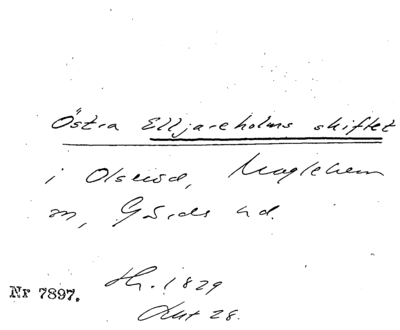 Östra Elljareholms skiftet
i Olseröd, Maglehem
sn, Gärds hd.
Hr. 1829
Nr 7897.
Akt 28.